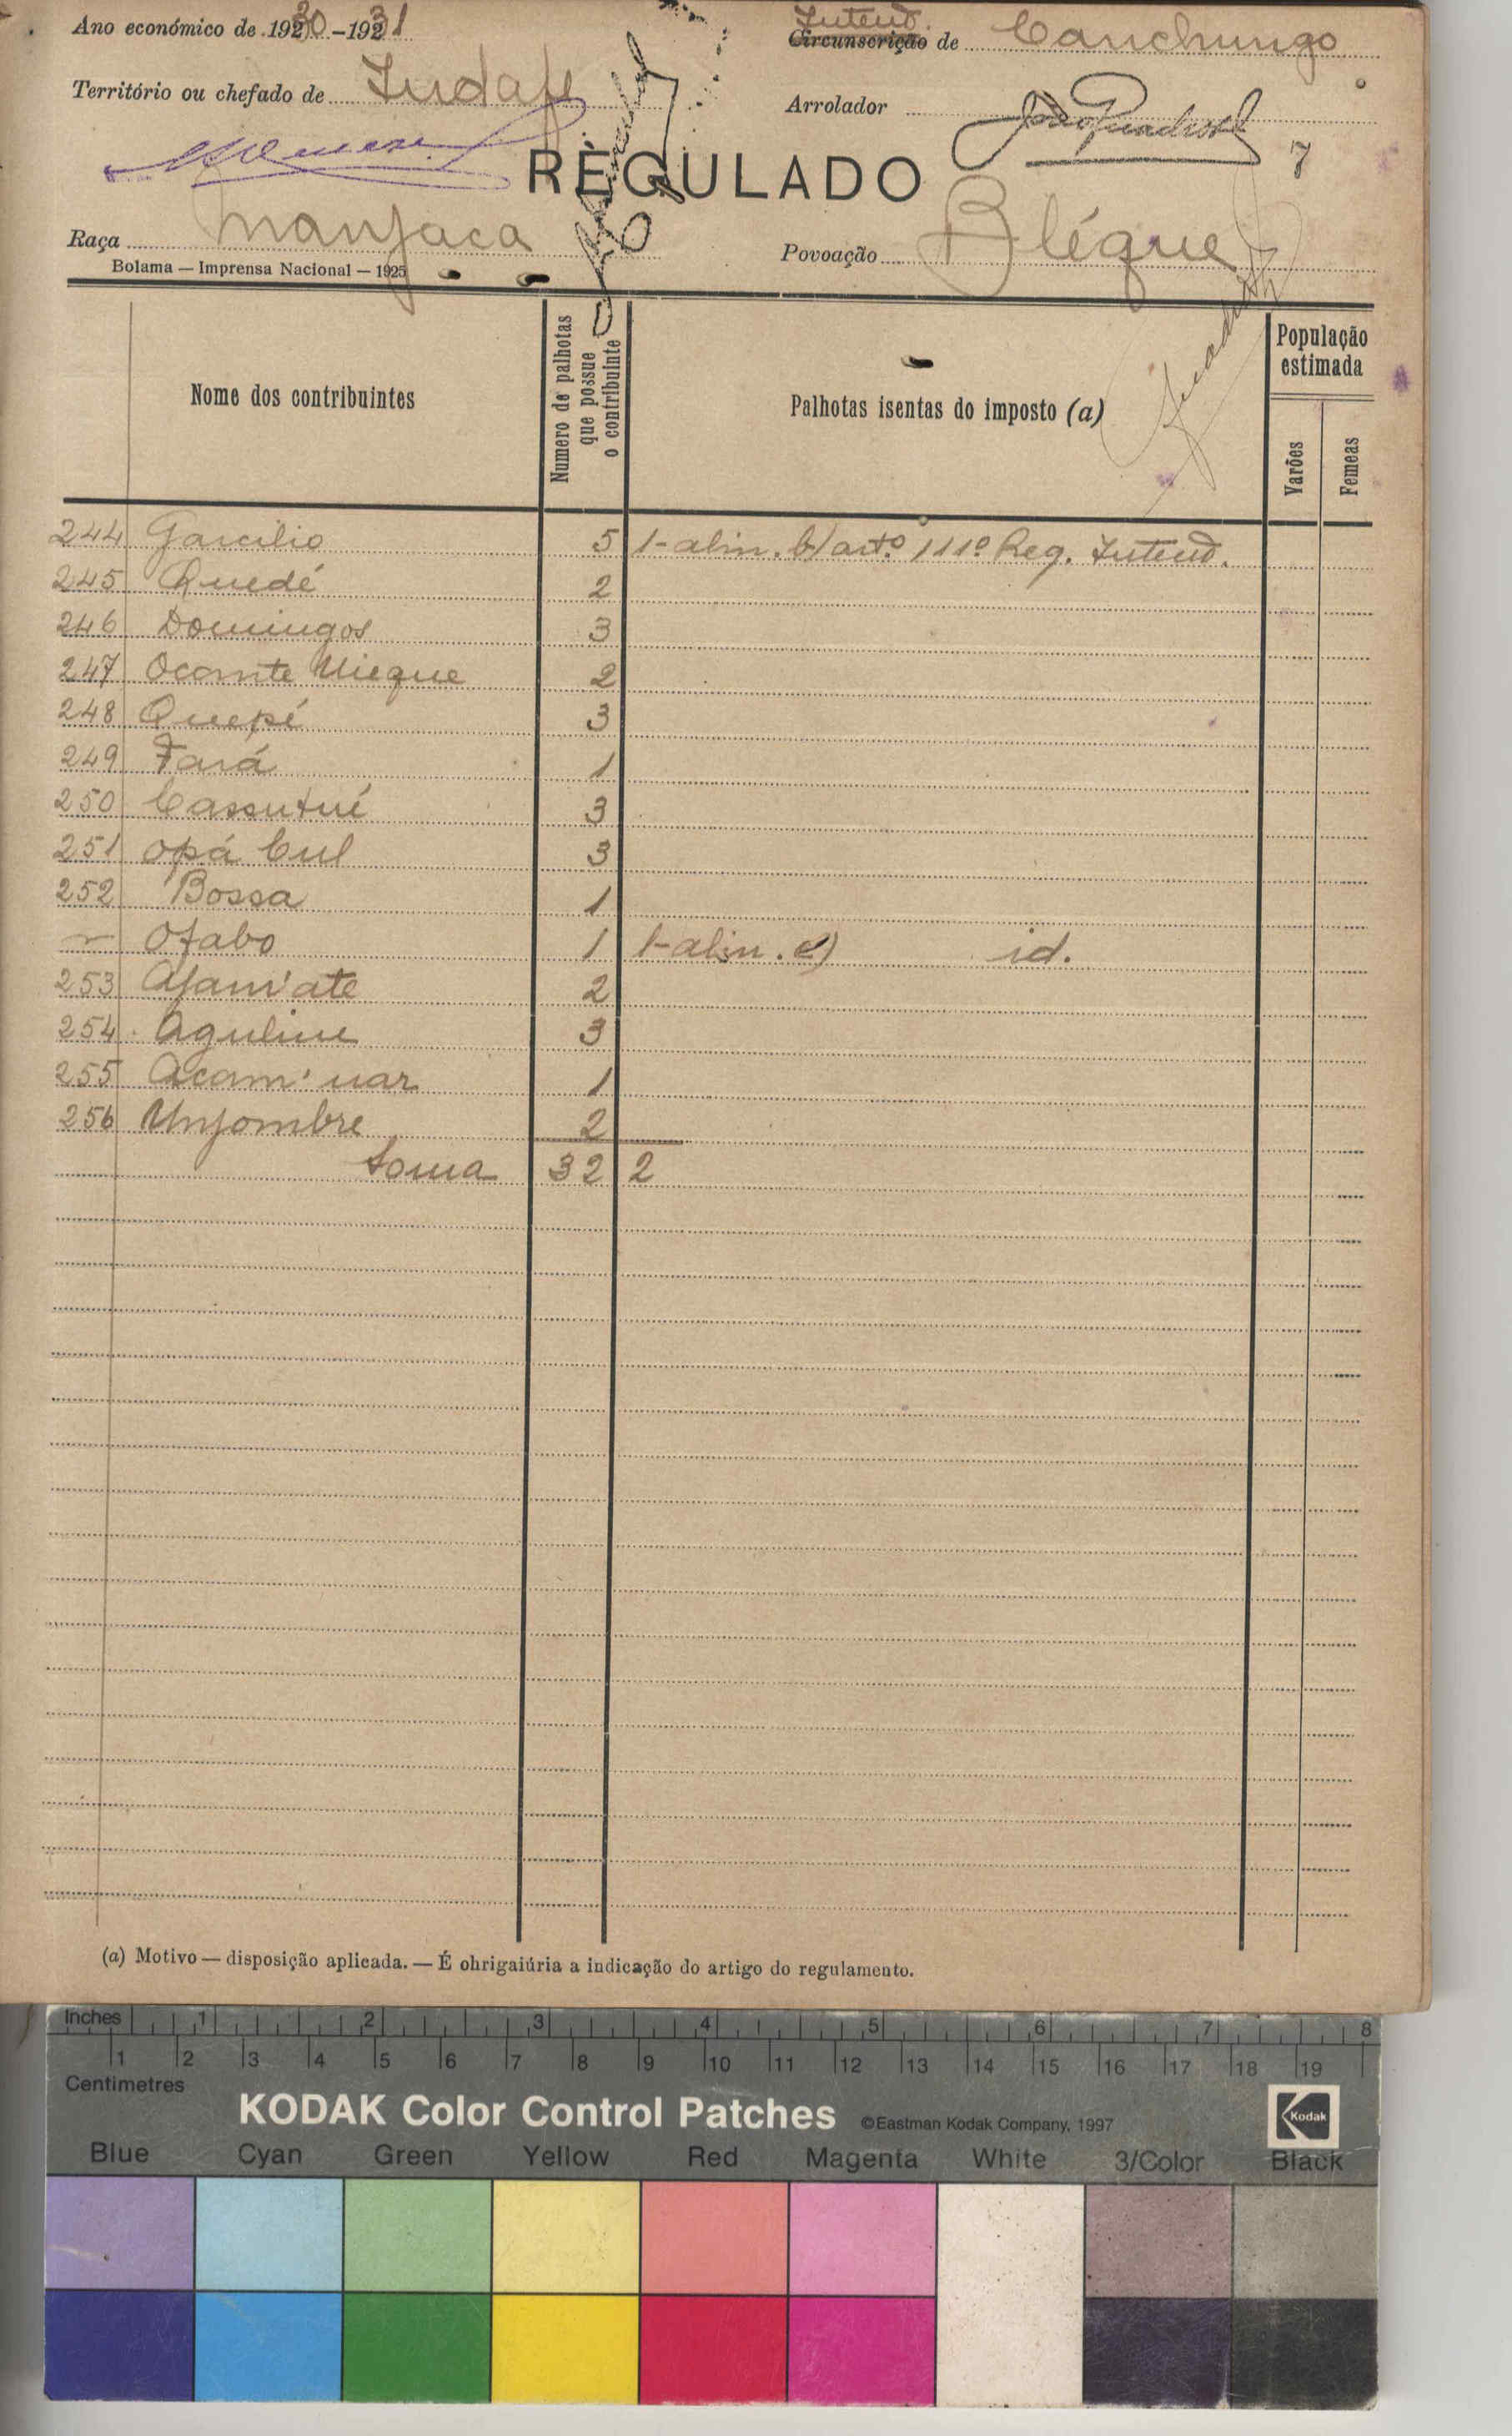 Ano económico de 1930-1931
Intend. Circunscrição de Canchungo
Território ou chefado de
Arrolador
7
REGULADO
Raça Manjaca
Povoação Bléque
Bolama — Imprensa Nacional — 1925
Nome dos contribuintes
Numero de palhotas
que possue
o contribuinte
Palhotas isentas do imposto (a)
População
estimada
Varões
Femeas
244 Garcilio 5 1-alin. b) artº 111º Reg. Intend.
245 Quedé 2
246 Domingos 3
247 Ocante Uieque 2
248 Quepi 3
249 Fará 1
250 Cassutui 3
251 Opá Cul 3
252 Bossa 1
— Ofabo 1 1-alin. e) id.
253 Afam'ate 2
254 Aguline 3
255 Acam'uar 1
256 Unjombre 2
Soma 32 2
(a) Motivo — disposição aplicada. — É ohrigaiúria a indicação do artigo do regulamento.
Inches 1 2 3 4 5 6 7 8
1 2 3 4 5 6 7 8 9 10 11 12 13 14 15 16 17 18 19
Centimetres
KODAK Color Control Patches ©Eastman Kodak Company, 1997 Kodak
Blue Cyan Green Yellow Red Magenta White 3/Color Black